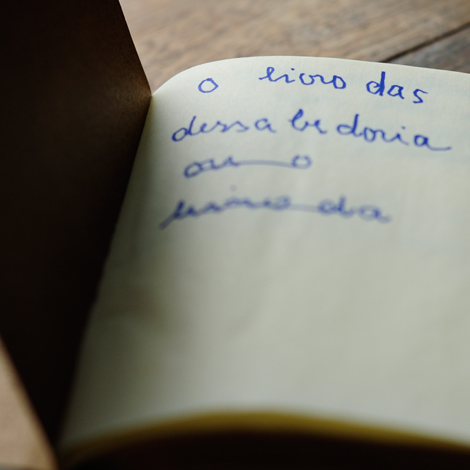 o livro das
dessabedoria
ou o
da